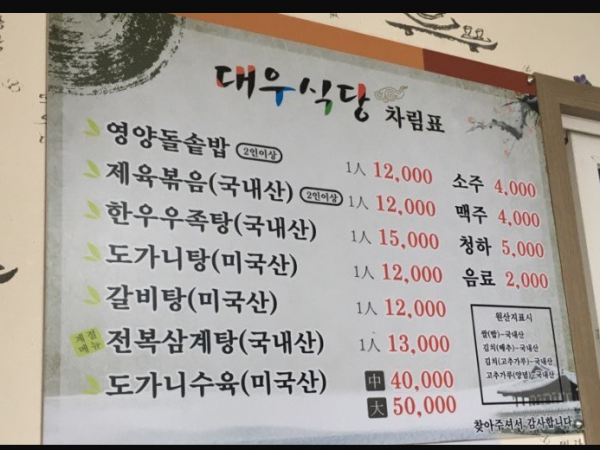 대우식당 차림표
영양돌솥밥 2인이상 1人 12,000
제육볶음(국내산) 2인이상 1人 12,000
한우우족탕(국내산) 1人 15,000
도가니탕(미국산) 1人 12,000
갈비탕(미국산) 1人 12,000
계절메뉴 전복삼계탕(국내산) 1人 13,000
도가니수육(미국산) 中 40,000
大 50,000
소주 4,000
맥주 4,000
청하 5,000
음료 2,000
원산지표시
쌀(밥)-국내산
김치(배추)-국내산
김치(고추가루)-국내산
고추가루(양념)-국내산
찾아주셔서 감사합니다